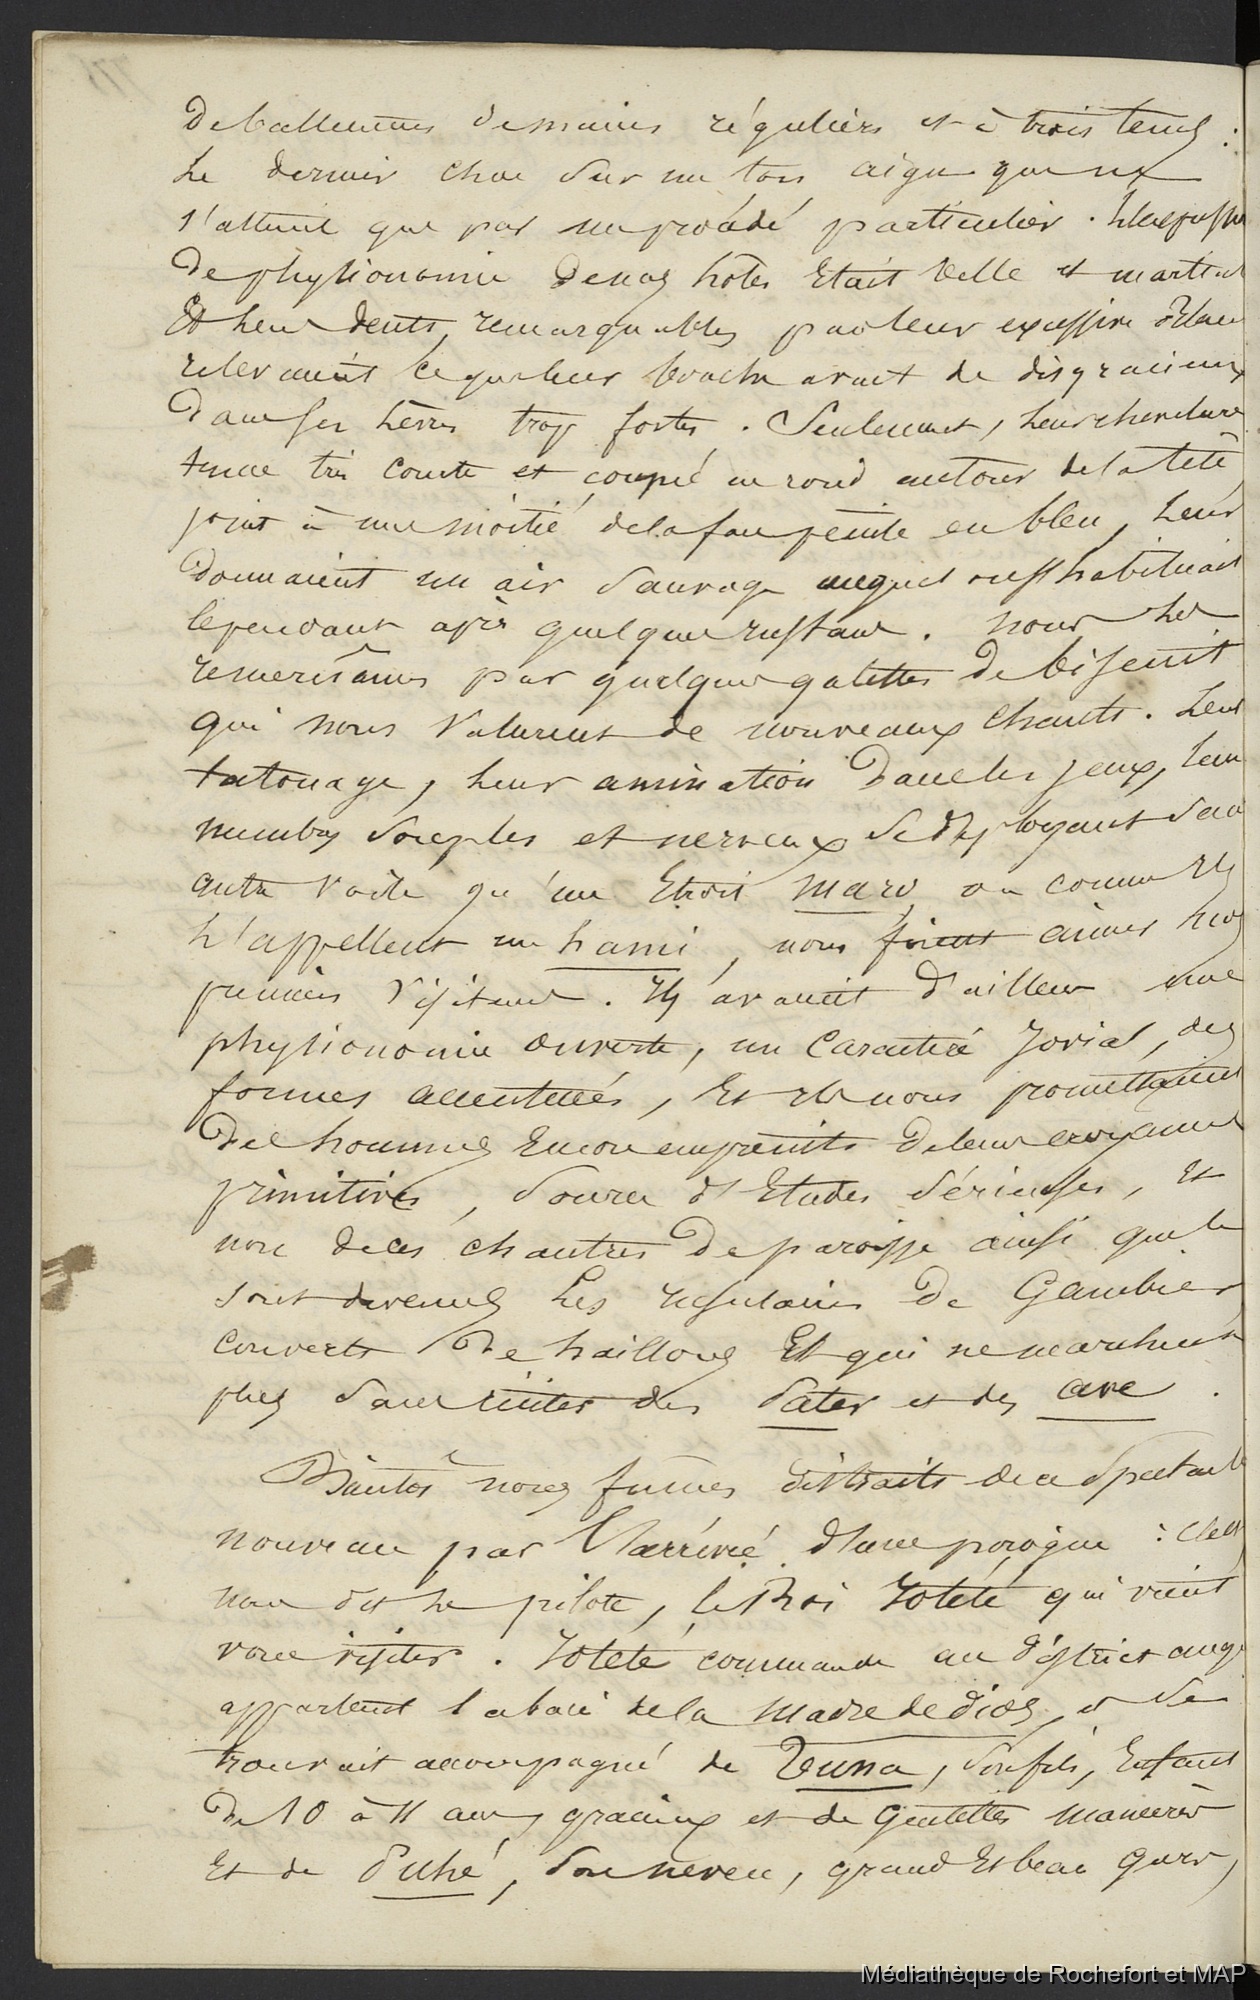 de battements de mains réguliers et à trois tems :
Le dernier choc sur un ton aigu qui ne
s'attend que par un procédé particulier.
de physionomie de nos hôtes était belle et martial
Et leur dents, remarquables par leur excessive éclan
relevaient ce que leur bouche avait de disgracieux
dans ses lèvres trop fortes. Seulement, leur chevelure
tenue très courte et coupée en rond autour de la tête
joint à une moitié de la face peinte en bleu, leur
donnaient un air sauvage auquel on s'habituait
cependant après quelques instans. nous les
remerciâmes par quelques galettes de biscuit
qui nous valurent de nouveaux chants. Leur
tatouage, leur animation dans les jeux, leur
membres souples et nerveux se déployant san
autre voile qu'un étroit maro ou comme ils
l'appellent un hami, nous firent aimer nos
premiers visiteurs. Ils avaient d'ailleurs une
physionomie ouverte, un caractère jovial, des
formes accentuées, et ils nous promettaient
des hommes encore empreints de leur croyance
primitives, source d'Etudes sérieuses, et
non de ces chantres de paroisse ainsi que le
sont devenus les insulaires de Gambier
couverts de haillons et qui ne marchent
plus sans réciter des Pater et des ave.
Biantôt nous fumes distraits de ce spectacle
nouveau par l'arrivée d'une pirogue : C'est
nous dit le pilote, le Roi Iotété qui vient
vous visiter. Iotété commande au district auqu
appartient la baie de la Madre de dios, et se
trouvait accompagné de Tuma, son fils, Enfant
de 10 à 11 ans, gracieux et de gentilles manières
Et de Puhé, son neveu, grand et beau gars,
Médiathèque de Rochefort et MAP